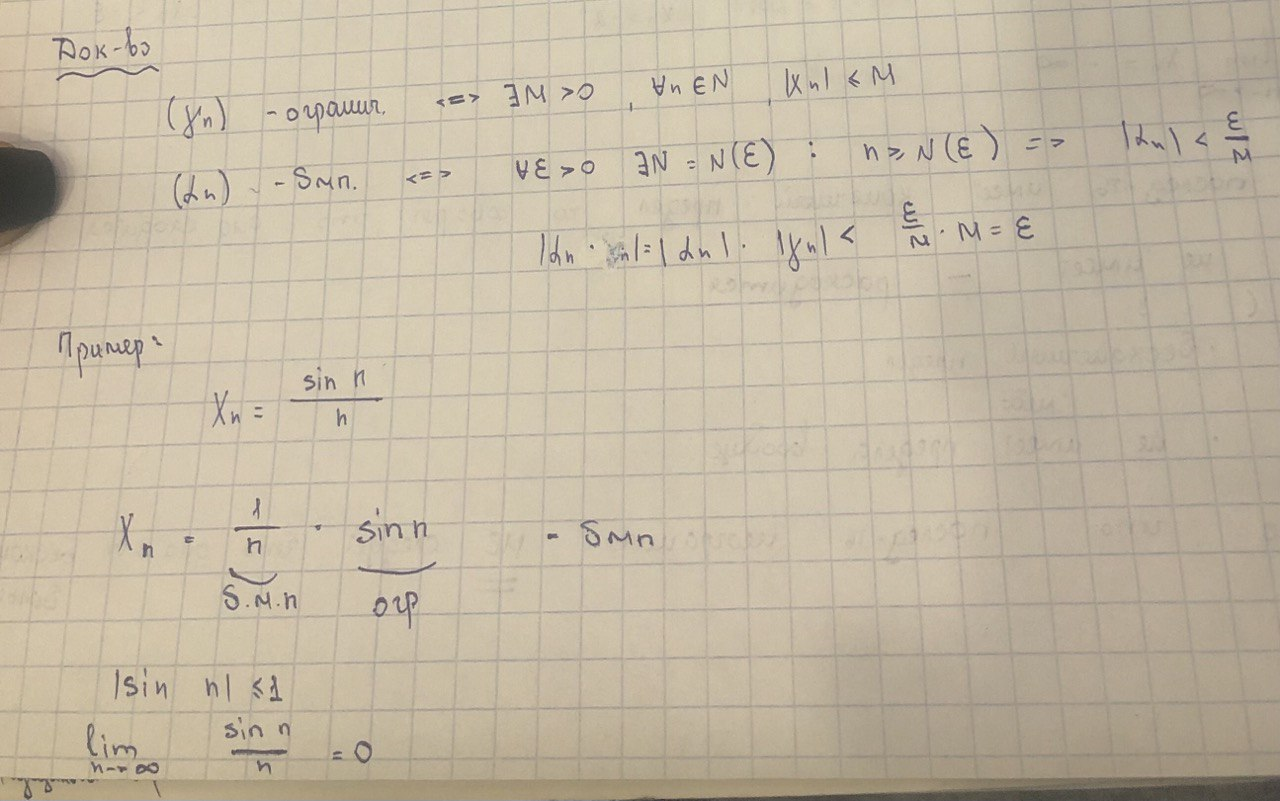 Док-во
(yₙ) - огранич. <=> ∃M >0 , ∀n∈N , |Xₙ| ≤ M
(αₙ) - бмп. <=> ∀ε >0 ∃N = N(ε) : n ≥ N(ε) => |αₙ| < ε/M
|αₙ · yₙ| = |αₙ| · |yₙ| < ε/M · M = ε
Пример:
Xₙ = sin n / n
Xₙ = 1/n · sin n - бмп
б.м.п огр
|sin n| ≤ 1
lim n→∞ sin n / n = 0